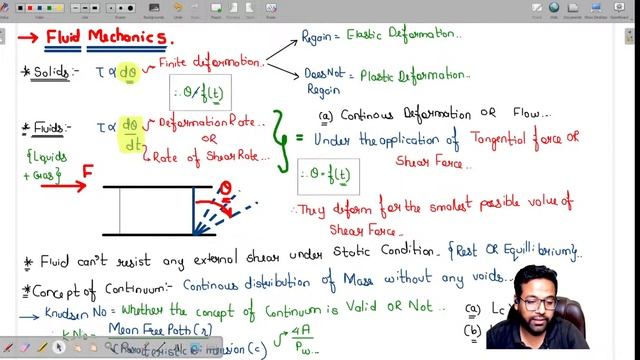 → Fluid Mechanics.
Regain = Elastic Deformation..
* Solids:- τ ∝ dθ Finite deformation..
Does Not Regain = Plastic Deformation..
∴ θ ≠ f(t)
(a) Continous Deformation OR Flow...
* Fluids:- τ ∝ dθ/dt Deformation Rate...
OR
Rate of Shear Rate...
{Liquids + Gas}
= Under the application of Tangential force OR Shear Force..
∴ θ = f(t)
F
θ
∴ They deform for the smallest possible value of Shear Force..
* Fluid can't resist any external shear under Static Condition.. {Rest OR Equillibrium}..
* Concept of Continuum:- Continous distribution of Mass without any voids...
→ Knudsen No = Whether the concept of Continuum is Valid OR Not..
(a) Lc
Mean Free Path (λ)
4A/Pw..
(b)